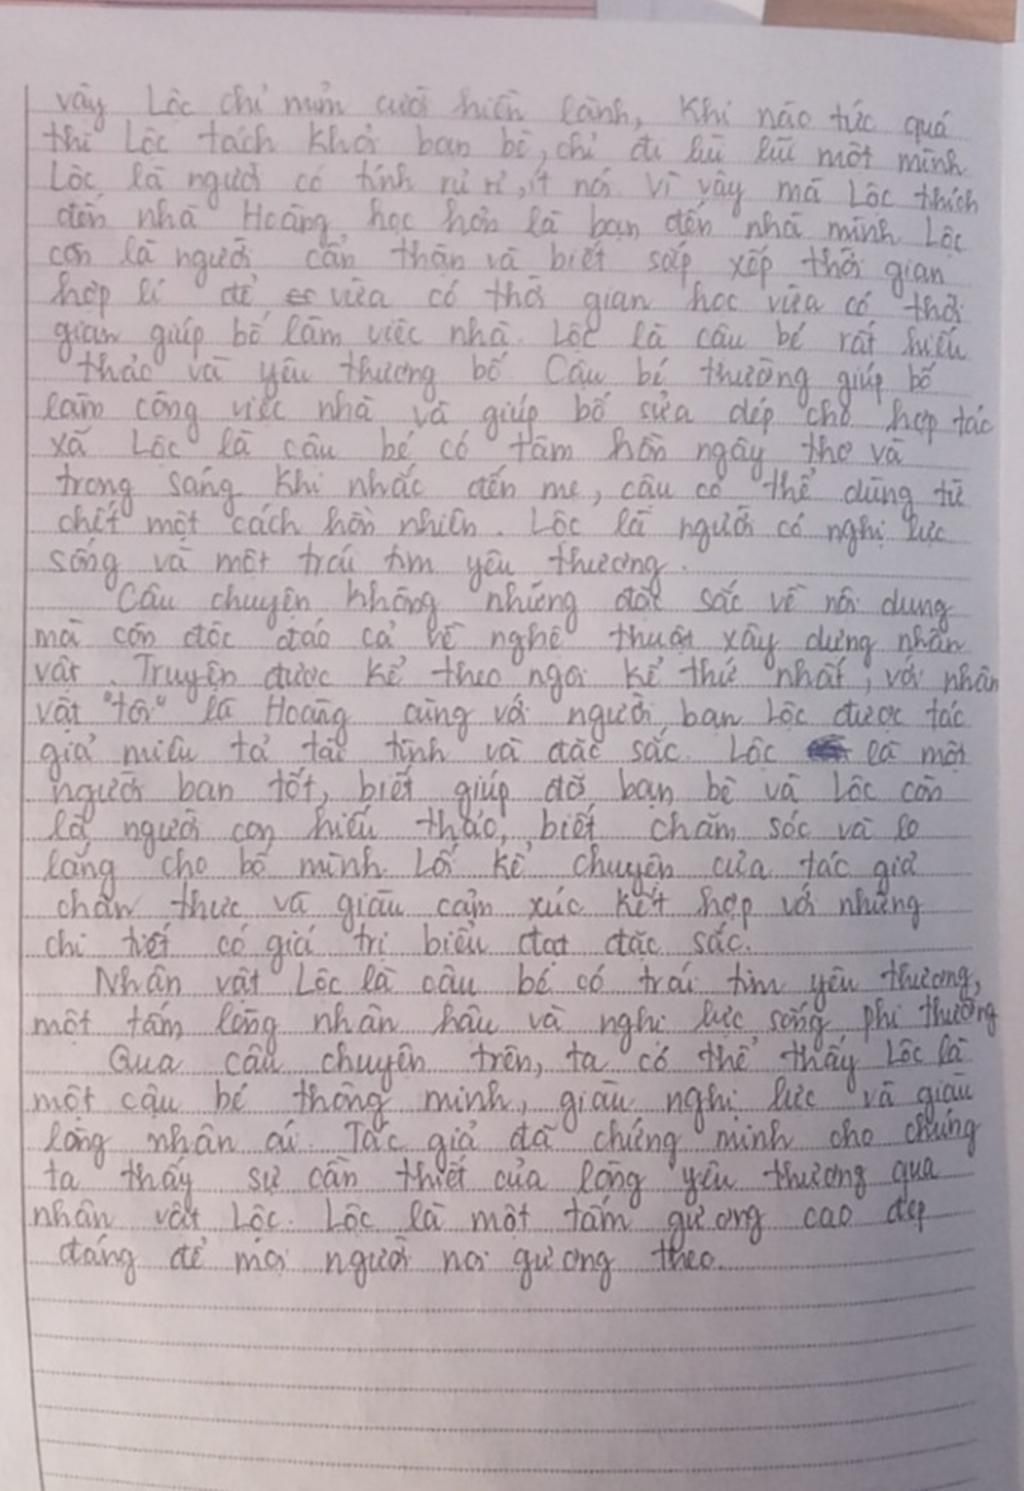 vậy Lộc chỉ mỉm cười hiền lành, Khi nào tức quá
thì Lộc tách khỏi bạn bè, chỉ đi lủi lủi một mình
Lộc là người có tính rủ rỉ, ít nói vì vậy mà Lộc thích
đến nhà Hoàng học hơn là bạn đến nhà mình Lộc
còn là người cẩn thận và biết sắp xếp thời gian
hợp lí để vừa có thời gian học vừa có thời
gian giúp bố làm việc nhà. Lộc là cậu bé rất hiếu
thảo và yêu thương bố Cậu bé thường giúp bố
làm công việc nhà và giúp bố sửa dép cho hợp tác
xã Lộc là cậu bé có tâm hồn ngây thơ và
trong sáng Khi nhắc đến mẹ, cậu có thể dùng từ
chết một cách hồn nhiên. Lộc là người có nghị lực
sống và một trái tim yêu thương.
Câu chuyện không những đặt sắc về nội dung
mà còn độc đáo cả về nghệ thuật xây dựng nhân
vật. Truyện được kể theo ngôi kể thứ nhất, với nhân
vật "tôi" là Hoàng cùng với người bạn Lộc được tác
giả miêu tả tài tình và đặc sắc. Lộc là một
người bạn tốt, biết giúp đỡ bạn bè và Lộc còn
là người con hiếu thảo, biết chăm sóc và lo
lắng cho bố mình Lối kể chuyện của tác giả
chân thực và giàu cảm xúc kết hợp với những
chi tiết có giá trị biểu đạt đặc sắc.
Nhân vật Lộc là cậu bé có trái tim yêu thương,
một tấm lòng nhân hậu và nghị lực sống phi thường
Qua câu chuyện trên, ta có thể thấy Lộc là
một cậu bé thông minh, giàu nghị lực và giàu
lòng nhân ái. Tác giả đã chứng minh cho chúng
ta thấy sự cần thiết của lòng yêu thương qua
nhân vật Lộc. Lộc là một tấm gương cao đẹp
đáng để mọi người noi gương theo.